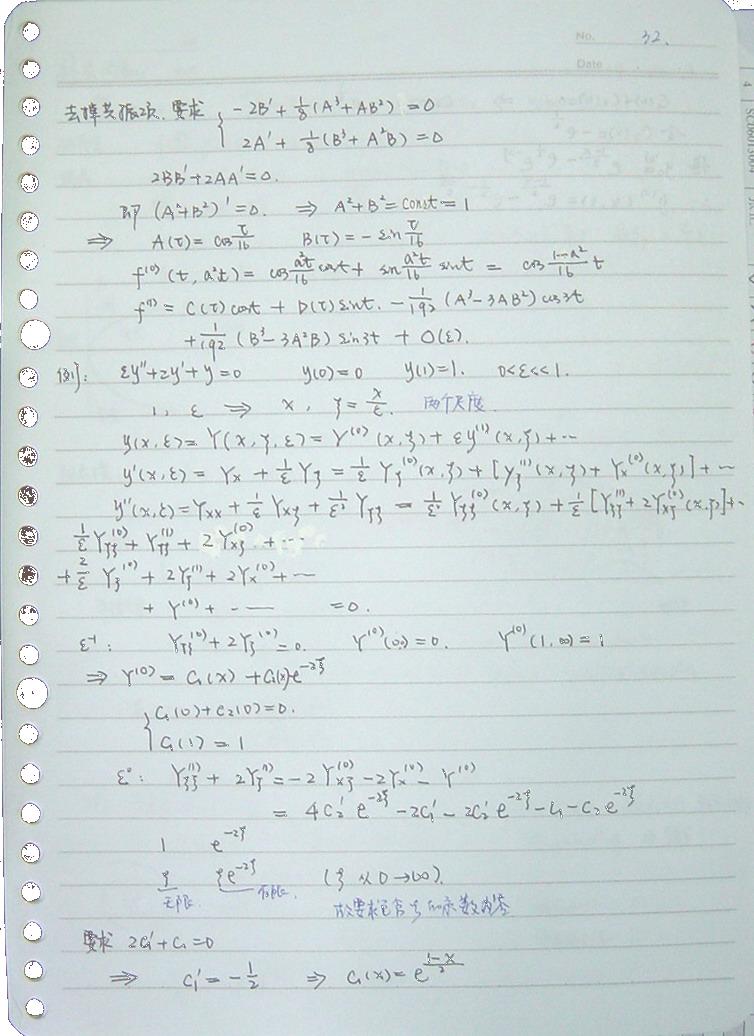 No. 32.
Date
去掉共振项. 要求 { -2B' + 1/8 (A³+AB²) = 0
2A' + 1/8 (B³+A²B) = 0
2BB'+2AA'=0.
即 (A²+B²)'=0. ⇒ A²+B²=const=1
⇒ A(τ) = cos τ/16 B(τ) = -sin τ/16
f⁽⁰⁾(t, a²t) = cos a²t/16 cost + sin a²t/16 sint = cos 1-a²/16 t
f⁽¹⁾ = C(τ) cost + D(τ) sint. - 1/192 (A³-3AB²) cos3t
+ 1/192 (B³-3A²B) sin3t + O(ε).
例: εy''+2y'+y=0 y(0)=0 y(1)=1. 0<ε<<1.
1, ε ⇒ x, ξ = x/ε. 两个尺度.
y(x,ε) = Y(x,ξ,ε) = Y⁽⁰⁾(x,ξ) + εY⁽¹⁾(x,ξ)+⋯
y'(x,ε) = Yx + 1/ε Yξ = 1/ε Yξ⁽⁰⁾(x,ξ) + [Yξ⁽¹⁾(x,ξ) + Yx⁽⁰⁾(x,ξ)] + ⋯
y''(x,ε) = Yxx + 2/ε Yxξ + 1/ε² Yξξ = 1/ε² Yξξ⁽⁰⁾(x,ξ) + 1/ε [Yξξ⁽¹⁾ + 2Yxξ⁽⁰⁾(x,ξ)]+⋯
1/ε Yξξ⁽⁰⁾ + Yξξ⁽¹⁾ + 2Yxξ⁽⁰⁾ + ⋯
+ 2/ε Yξ⁽⁰⁾ + 2Yξ⁽¹⁾ + 2Yx⁽⁰⁾ + ⋯
+ Y⁽⁰⁾ + ⋯ = 0.
ε⁻¹: Yξξ⁽⁰⁾ + 2Yξ⁽⁰⁾ = 0. Y⁽⁰⁾(0,0) = 0. Y⁽⁰⁾(1,∞) = 1
⇒ Y⁽⁰⁾ = C₁(x) + C₂(x)e^{-2ξ}
{ C₁(0)+C₂(0)=0.
C₁(1) = 1
ε⁰: Yξξ⁽¹⁾ + 2Yξ⁽¹⁾ = -2Yxξ⁽⁰⁾ - 2Yx⁽⁰⁾ - Y⁽⁰⁾
= 4C₂' e^{-2ξ} - 2C₁' - 2C₂' e^{-2ξ} - C₁ - C₂e^{-2ξ}
1 e^{-2ξ}
ξ ξe^{-2ξ} (ξ 从 0→∞).
无限. 有限. 故要求包含ξ的系数为零
要求 2C₁'+C₁=0
⇒ C₁' = -1/2 ⇒ C₁(x) = e^{1-x/2}